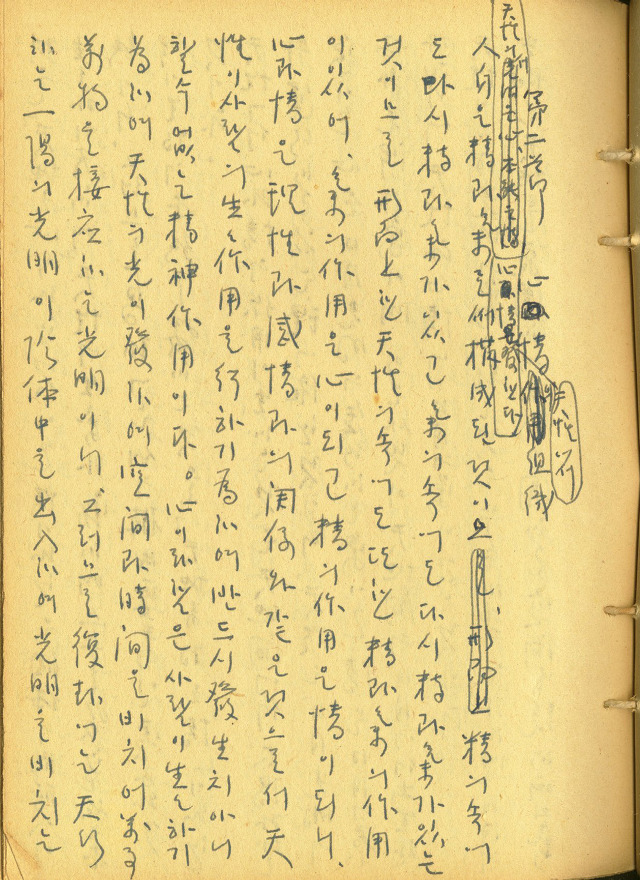 第二节 心情 組織
人身은 精과 氣로 構成된 것이요 精의 속에
도 다시 精과 氣가 있고 氣의 속에도 다시 精과 氣가 있는
것이므로 形而上인 天性의 속에도 또한 精과 氣의 作用
이 있어, 氣의 作用은 心이 되고 精의 作用은 情이 되니,
心과 情은 理性과 感情과의 関係와 같은 것으로서 天
性이 사람의 生命作用을 行하기 為하여 반드시 發生치 아니
할 수 없는 精神作用이다。心이라 함은 사람이 生을 하기
為하여 天性의 光이 發하여 空間과 時間을 비치어 萬事
萬物을 接應하는 光明이니 그러므로 復卦에는 天行
하는 一陽의 光明이 陰体中을 出入하여 光明을 비치는